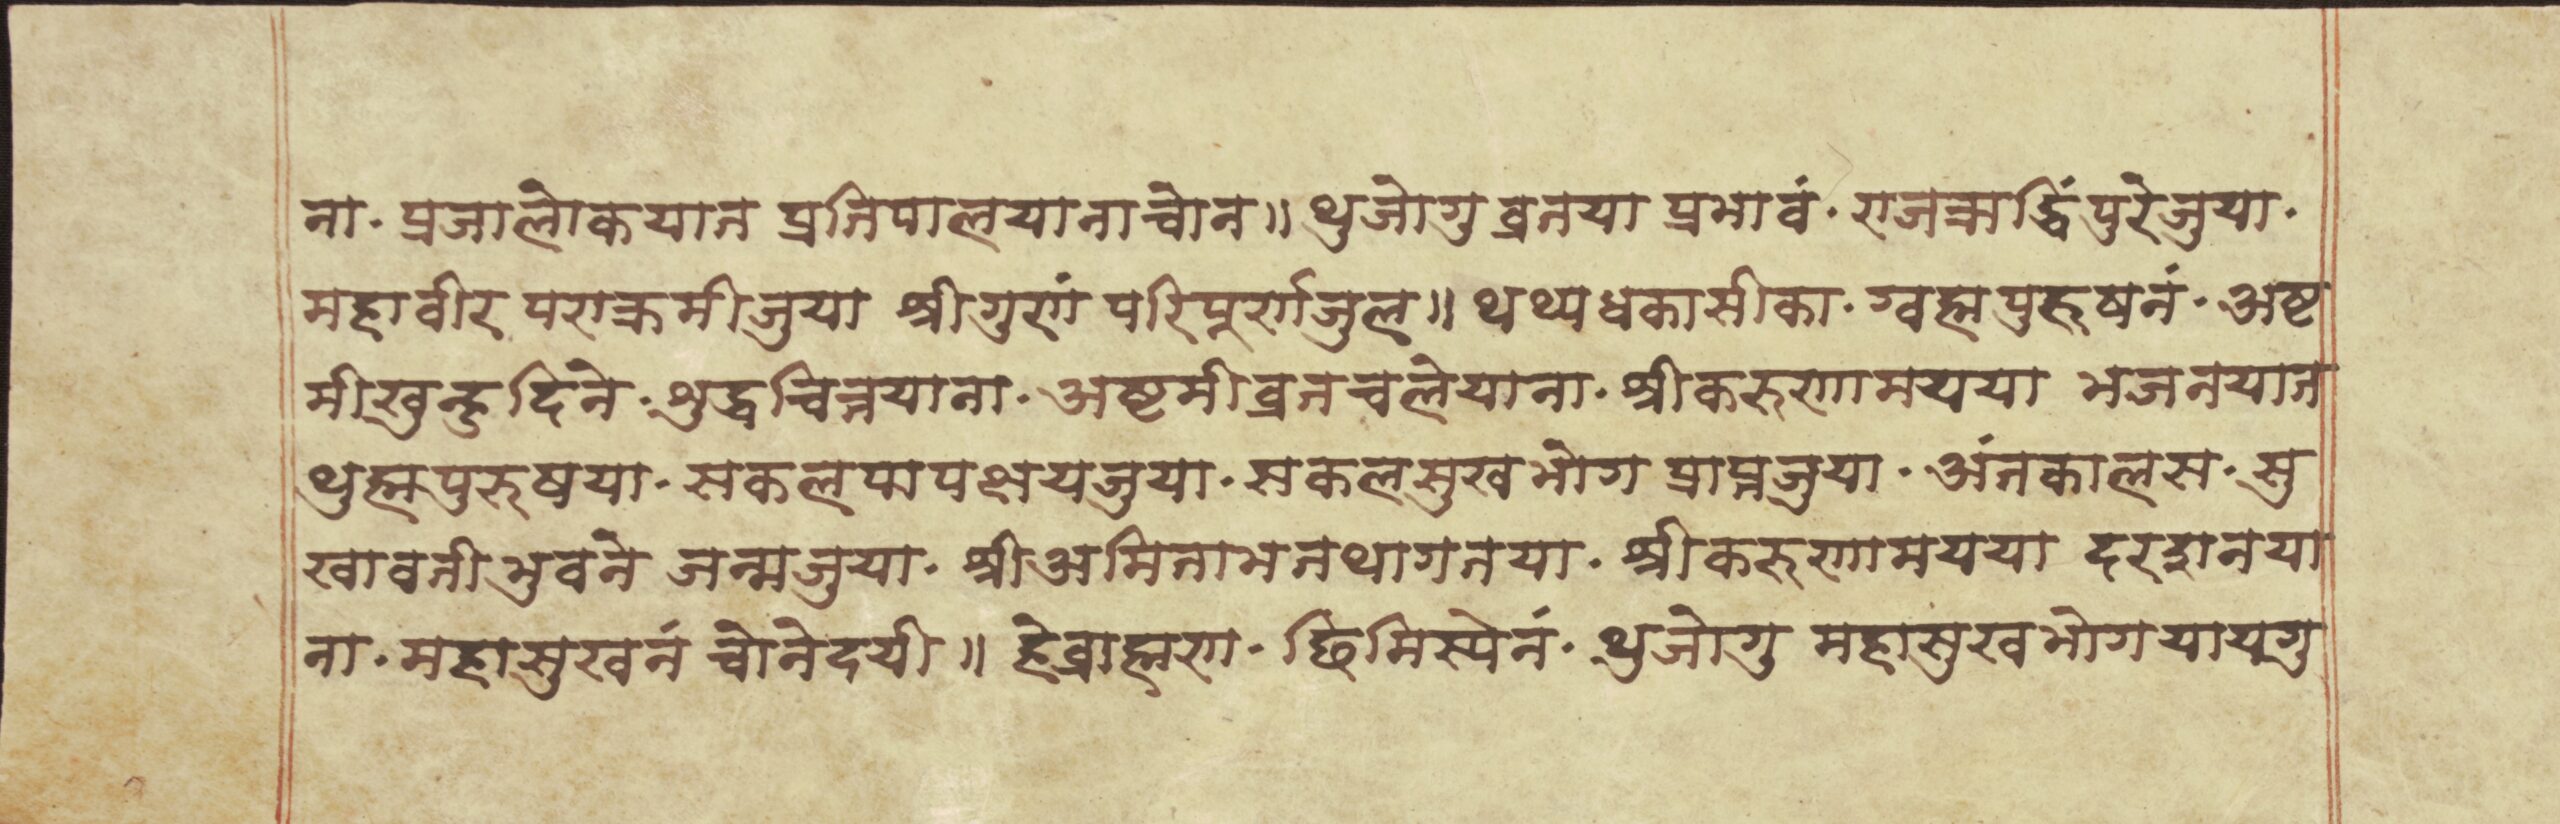 ना· प्रजालोकयात प्रतिपालयानाचोन॥ थुजोगु व्रतया प्रभावं· राजह्माद्धिंपुरेजुया·
महावीर पराक्रमीजुया श्रीगुणं परिपूर्णजुल॥ थथ्यधकासीका· ग्वह्मपुरुषनं· अष्ट
मीखुन्हु दिने· शुद्धचित्तयाना· अष्टमीव्रतचलेयाना· श्रीकरुणामयया भजनयात
थुह्मपुरुषया· सकलपापक्षयजुया· सकलसुखभोग प्राप्तजुया· अंतकालस· सु
खावतीभुवने जन्मजुया· श्रीअमिताभतथागतया· श्रीकरुणामयया दरशनया
ना· महासुखनं चोनेदयी॥ हेब्राह्मण· छिमिस्येनं· थुजोगु महासुखभोगयायगु